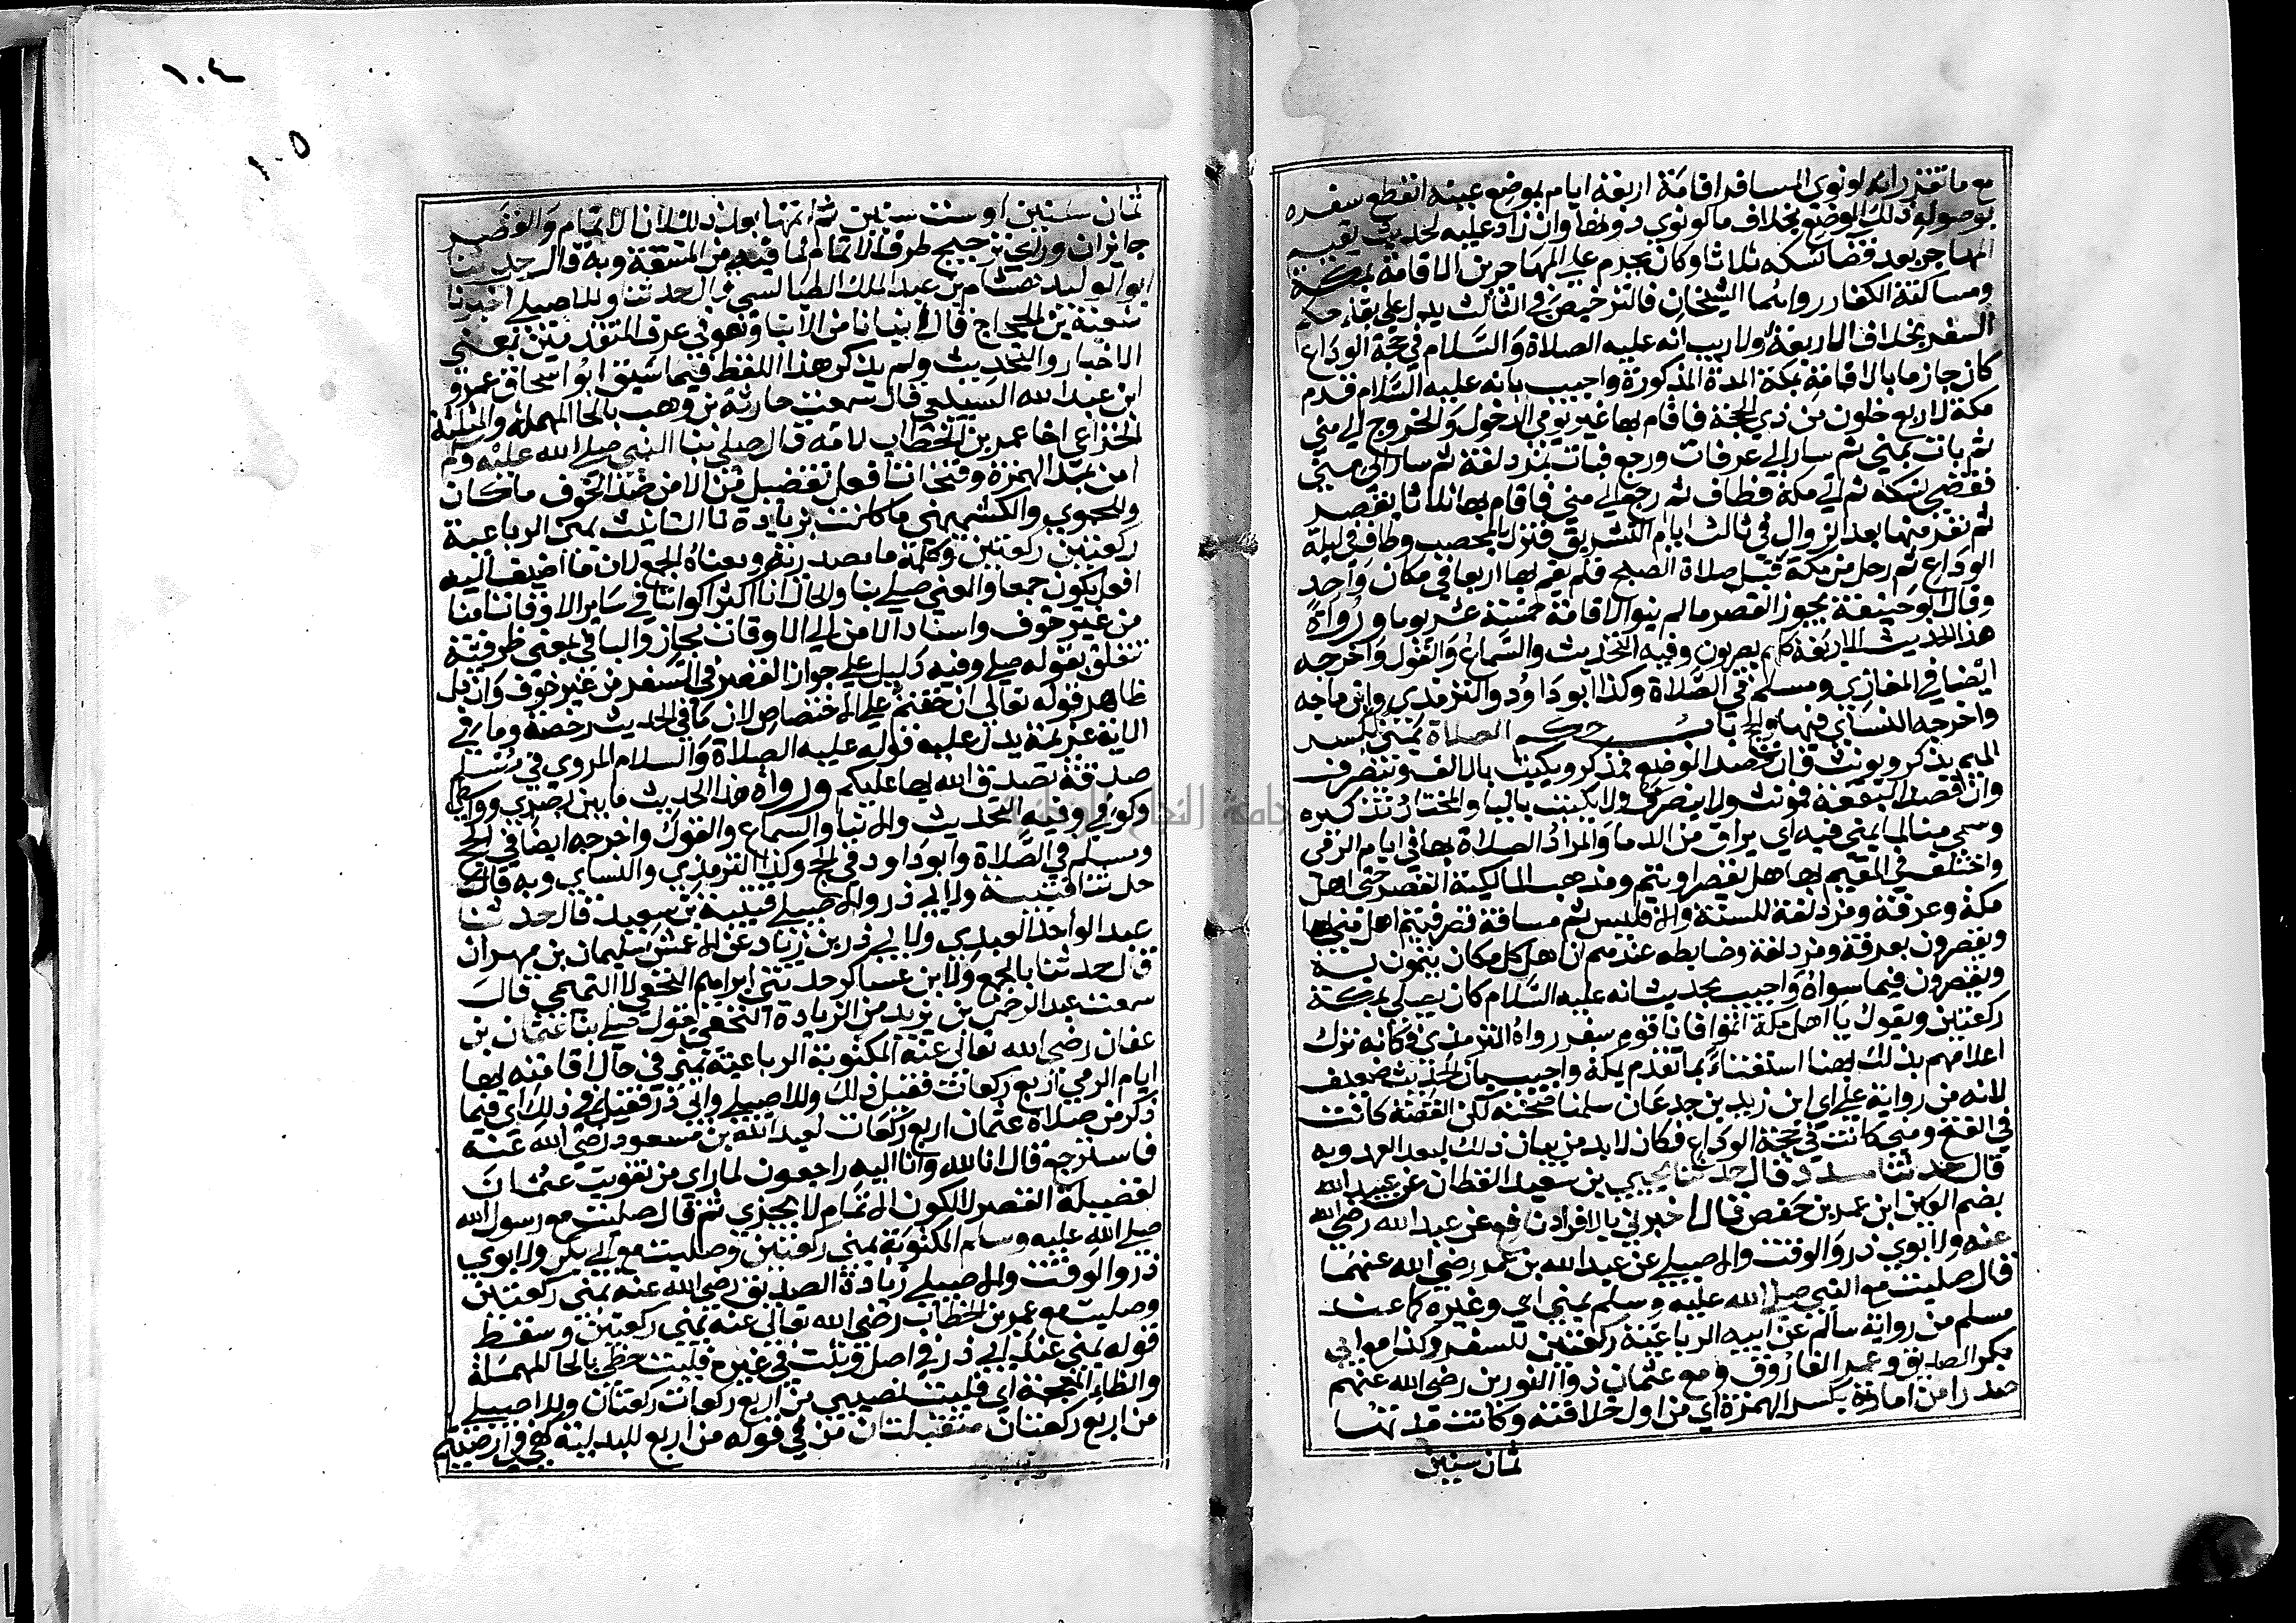 مع ما تقرر انه لو نوى المسافر اقامة اربعة ايام بموضع عينه انقطع سفره
بوصوله ذلك الموضع بخلاف ما لو نوى دونها وان زاد عليه لحديث يقيم
المهاجر بعد قضا نسكه ثلاثا وكان يحرم على المهاجرين الاقامة بمكة
ومساكنة الكفار رواهما الشيخان فالترخيص في الثالث يدل على بقاء حكم
السفر بخلاف الاربعة ولا ريب انه عليه الصلاة والسلام في حجة الوداع
كان جازما بالاقامة بمكة المدة المذكورة واجيب بانه عليه السلام قدم
مكة لاربع خلون من ذي الحجة فاقام بها غير يومي الدخول والخروج الى منى
ثم بات بمنى ثم سار الى عرفات ورجع فبات بمزدلفة ثم سار الى منى
فقضى نسكه ثم الى مكة فطاف ثم رجع الى منى فاقام بها ثلاثا يقصر
ثم نفر منها بعد الزوال في ثالث ايام التشريق فنزل بالمحصب وطاف في ليلة
الوداع ثم رحل من مكة قبل صلاة الصبح فلم يقم بها اربعا في مكان واحد
وقال ابو حنيفة يجوز القصر ما لم ينو الاقامة خمسة عشر يوما ورواة
هذا الحديث الاربعة كلهم بصريون وفيه التحديث والسماع والقول واخرجه
ايضا في المغازي ومسلم في الصلاة وكذا ابو داود والترمذي وابن ماجه
واخرجه النساي فيها وفي باب حكم الصلاة بمنى بكسر
الميم يذكر ويونث فان قصد الموضع فمذكر ويكتب بالالف وينصرف
وان قصد البقعة فمونث ولا ينصرف ولا يكتب باليا والمختار تذكيره
وسمي منا لما يمنى فيه اي يراق من الدما والمراد الصلاة بها في ايام الرمي
واختلف في المقيم بها هل يقصر او يتم ومذهب المالكية القصر حتى اهل
مكة وعرفة ومزدلفة للسنة والا فليس ثم مسافة قصر فيتم اهل منى بها
ويقصرون بعرفة ومزدلفة وضابطه عندهم ان اهل كل مكان يتمون به
ويقصرون فيما سواه واجيب بحديث انه عليه السلام كان يصلي بمكة
ركعتين ويقول يا اهل مكة اتموا فانا قوم سفر رواه الترمذي فكانه ترك
اعلامهم بذلك بهنا استغناء بما تقدم بمكة واجيب بان الحديث ضعيف
لانه من رواية علي اي ابن زيد بن جدعان سلمنا صحته لكن القصة كانت
في الفتح ومنى كانت في حجة الوداع فكان لا بد من بيان ذلك لبعد العهد وبه
قال حدثنا مسدد قال حدثنا يحيى بن سعيد القطان عن عبيد الله
بضم العين ابن عمر بن حفص قال اخبرني بالافراد نافع عن عبد الله رضي الله
عنه ولابوي ذر والوقت والاصيلي عن عبد الله بن عمر رضي الله عنهما
قال صليت مع النبي صلى الله عليه وسلم بمنى اي وغيره كما عند
مسلم من رواية سالم عن ابيه الرباعية ركعتين للسفر وكذا مع ابي
بكر الصديق وعمر الفاروق ومع عثمان ذو النورين رضي الله عنهم
صدرا من امارته بكسر الهمزة اي من اول خلافته وكانت مدتها
ثمان سنين
١٠٤
١٠٥
ثمان سنين او ست سنين ثم اتمها بعد ذلك لان الاتمام والقصر
جايزان وراى ترجيح طرف الاتمام لما فيه من المشقة وبه قال حدثنا
ابو الوليد هشام بن عبد الملك الطيالسي قال حدثنا وللاصيلي اخبرنا
شعبة بن الحجاج قال انبانا من الانبا وهو في عرف المتقدمين بمعنى
الاخبار والتحديث ولم يذكر هذا اللفظ فيما سبق ابو اسحاق عمرو
ابن عبد الله السبيعي قال سمعت حارثة بن وهب بالحا المهملة والمثلثة
الخزاعي اخا عمر بن الخطاب لامه قال صلى بنا النبي صلى الله عليه وسلم
امن بمد الهمزة وفتحات افعل تفضيل من الامن ضد الخوف ما كان
وللحموي والكشميهني ما كانت بزيادة تا التانيث بمنى الرباعية
ركعتين ركعتين وكلمة ما مصدرية ومعناه الجمع لان ما اضيف اليه
افعل يكون جمعا والمعنى صلى بنا والحال انا اكثر اكواننا في ساير الاوقات امنا
من غير خوف واسناد الامن الى الاوقات مجاز والبا في بمنى ظرفية
تتعلق بقوله صلى وفيه دليل على جواز القصر في السفر من غير خوف وان دل
ظاهر قوله تعالى ان خفتم على الاختصاص لان ما في الحديث رخصة وما في
الاية عزيمة يدل عليه قوله عليه الصلاة والسلام المروي في مسلم
صدقة تصدق الله بها عليكم ورواة هذا الحديث ما بين بصري وواسطي
وكوفي وفيه التحديث والانبا والسماع والقول واخرجه ايضا في الحج
ومسلم في الصلاة وابو داود في الحج وكذا الترمذي والنساي وبه قال
حدثنا قتيبة ولابي ذر والاصيلي قتيبة بن سعيد قال حدثنا
عبد الواحد العبدي ولابي ذر بن زياد عن الاعمش سليمان بن مهران
قال حدثنا بالجمع ولابن عساكر حدثني ابراهيم النخعي لا التيمي قال
سمعت عبد الرحمن بن يزيد من الزيادة النخعي يقول صلى بنا عثمان بن
عفان رضي الله تعالى عنه المكتوبة الرباعية بمنى في حال اقامته بها
ايام الرمي اربع ركعات فقيل ذلك وللاصيلي وابي ذر فقيل في ذلك اي فيما
ذكر من صلاة عثمان اربع ركعات لعبد الله بن مسعود رضي الله عنه
فاسترجع قال انا لله وانا اليه راجعون لما راى من تفويت عثمان
لفضيلة القصر لا لكون الاتمام لا يجزي ثم قال صليت مع رسول الله
صلى الله عليه وسلم المكتوبة بمنى ركعتين وصليت مع ابي بكر ولابوي
ذر والوقت والاصيلي زيادة الصديق رضي الله عنه بمنى ركعتين
وصليت مع عمر بن الخطاب رضي الله تعالى عنه بمنى ركعتين وسقط
قوله بمنى عند ابي ذر في اصل وثبت في غيره فليت حظي بالحا المهملة
والظاء المعجمة اي فليت نصيبي من اربع ركعات ركعتان وللاصيلي
من اربع ركعتان متقبلتان من في قوله من اربع للبدلية كهي في ارضيتم